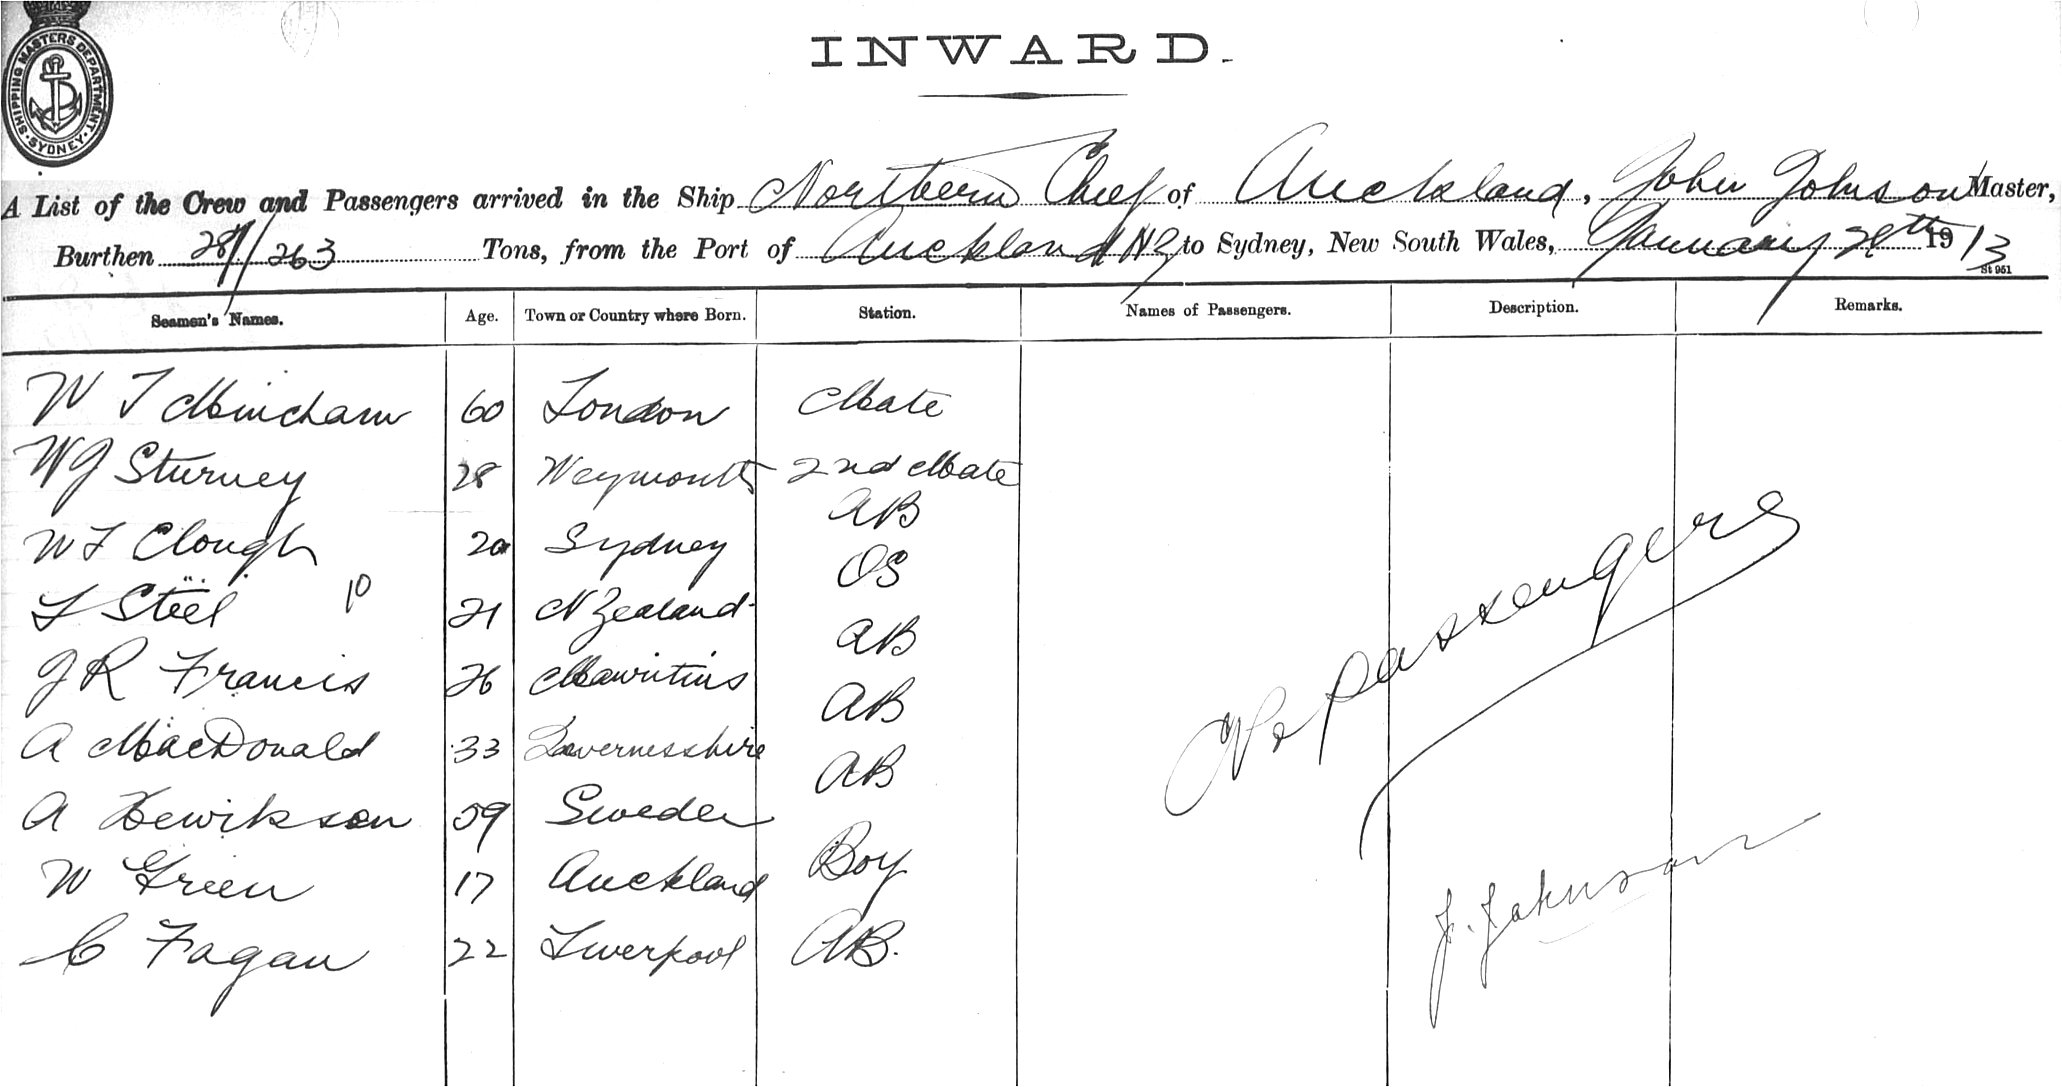 SHIPPING MASTERS DEPARTMENT
SYDNEY
INWARD.
A List of the Crew and Passengers arrived in the Ship Northern Chief of Auckland, John Johnson Master,
Burthen 263 Tons, from the Port of Auckland NZ to Sydney, New South Wales, January 28th 1913
St 951
Seamen's Names. Age. Town or Country where Born. Station. Names of Passengers. Description. Remarks.
W T Mincham 60 London Mate
W J Sturney 28 Weymouth 2nd Mate
W F Clough 20 Sydney AB
F Steel 10 21 N Zealand OS
J R Francis 26 Mauritius AB
A MacDonald 33 Invernesshire AB
A Henrikson 59 Sweden AB
W Green 17 Auckland Boy
C Fagan 22 Liverpool AB.
No passengers
J. Johnson